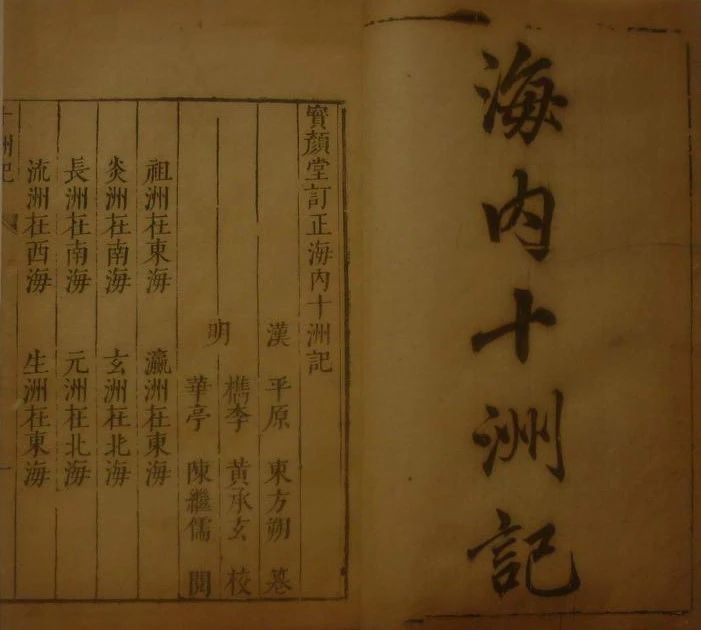 海內十洲記
寶顏堂訂正海內十洲記
漢 平原 東方朔
明
檇李 黃承玄 校
華亭 陳繼儒 閱
祖洲在東海 瀛洲在東海
炎洲在南海 玄洲在北海
長洲在南海 元洲在北海
流洲在西海 生洲在東海
十洲記